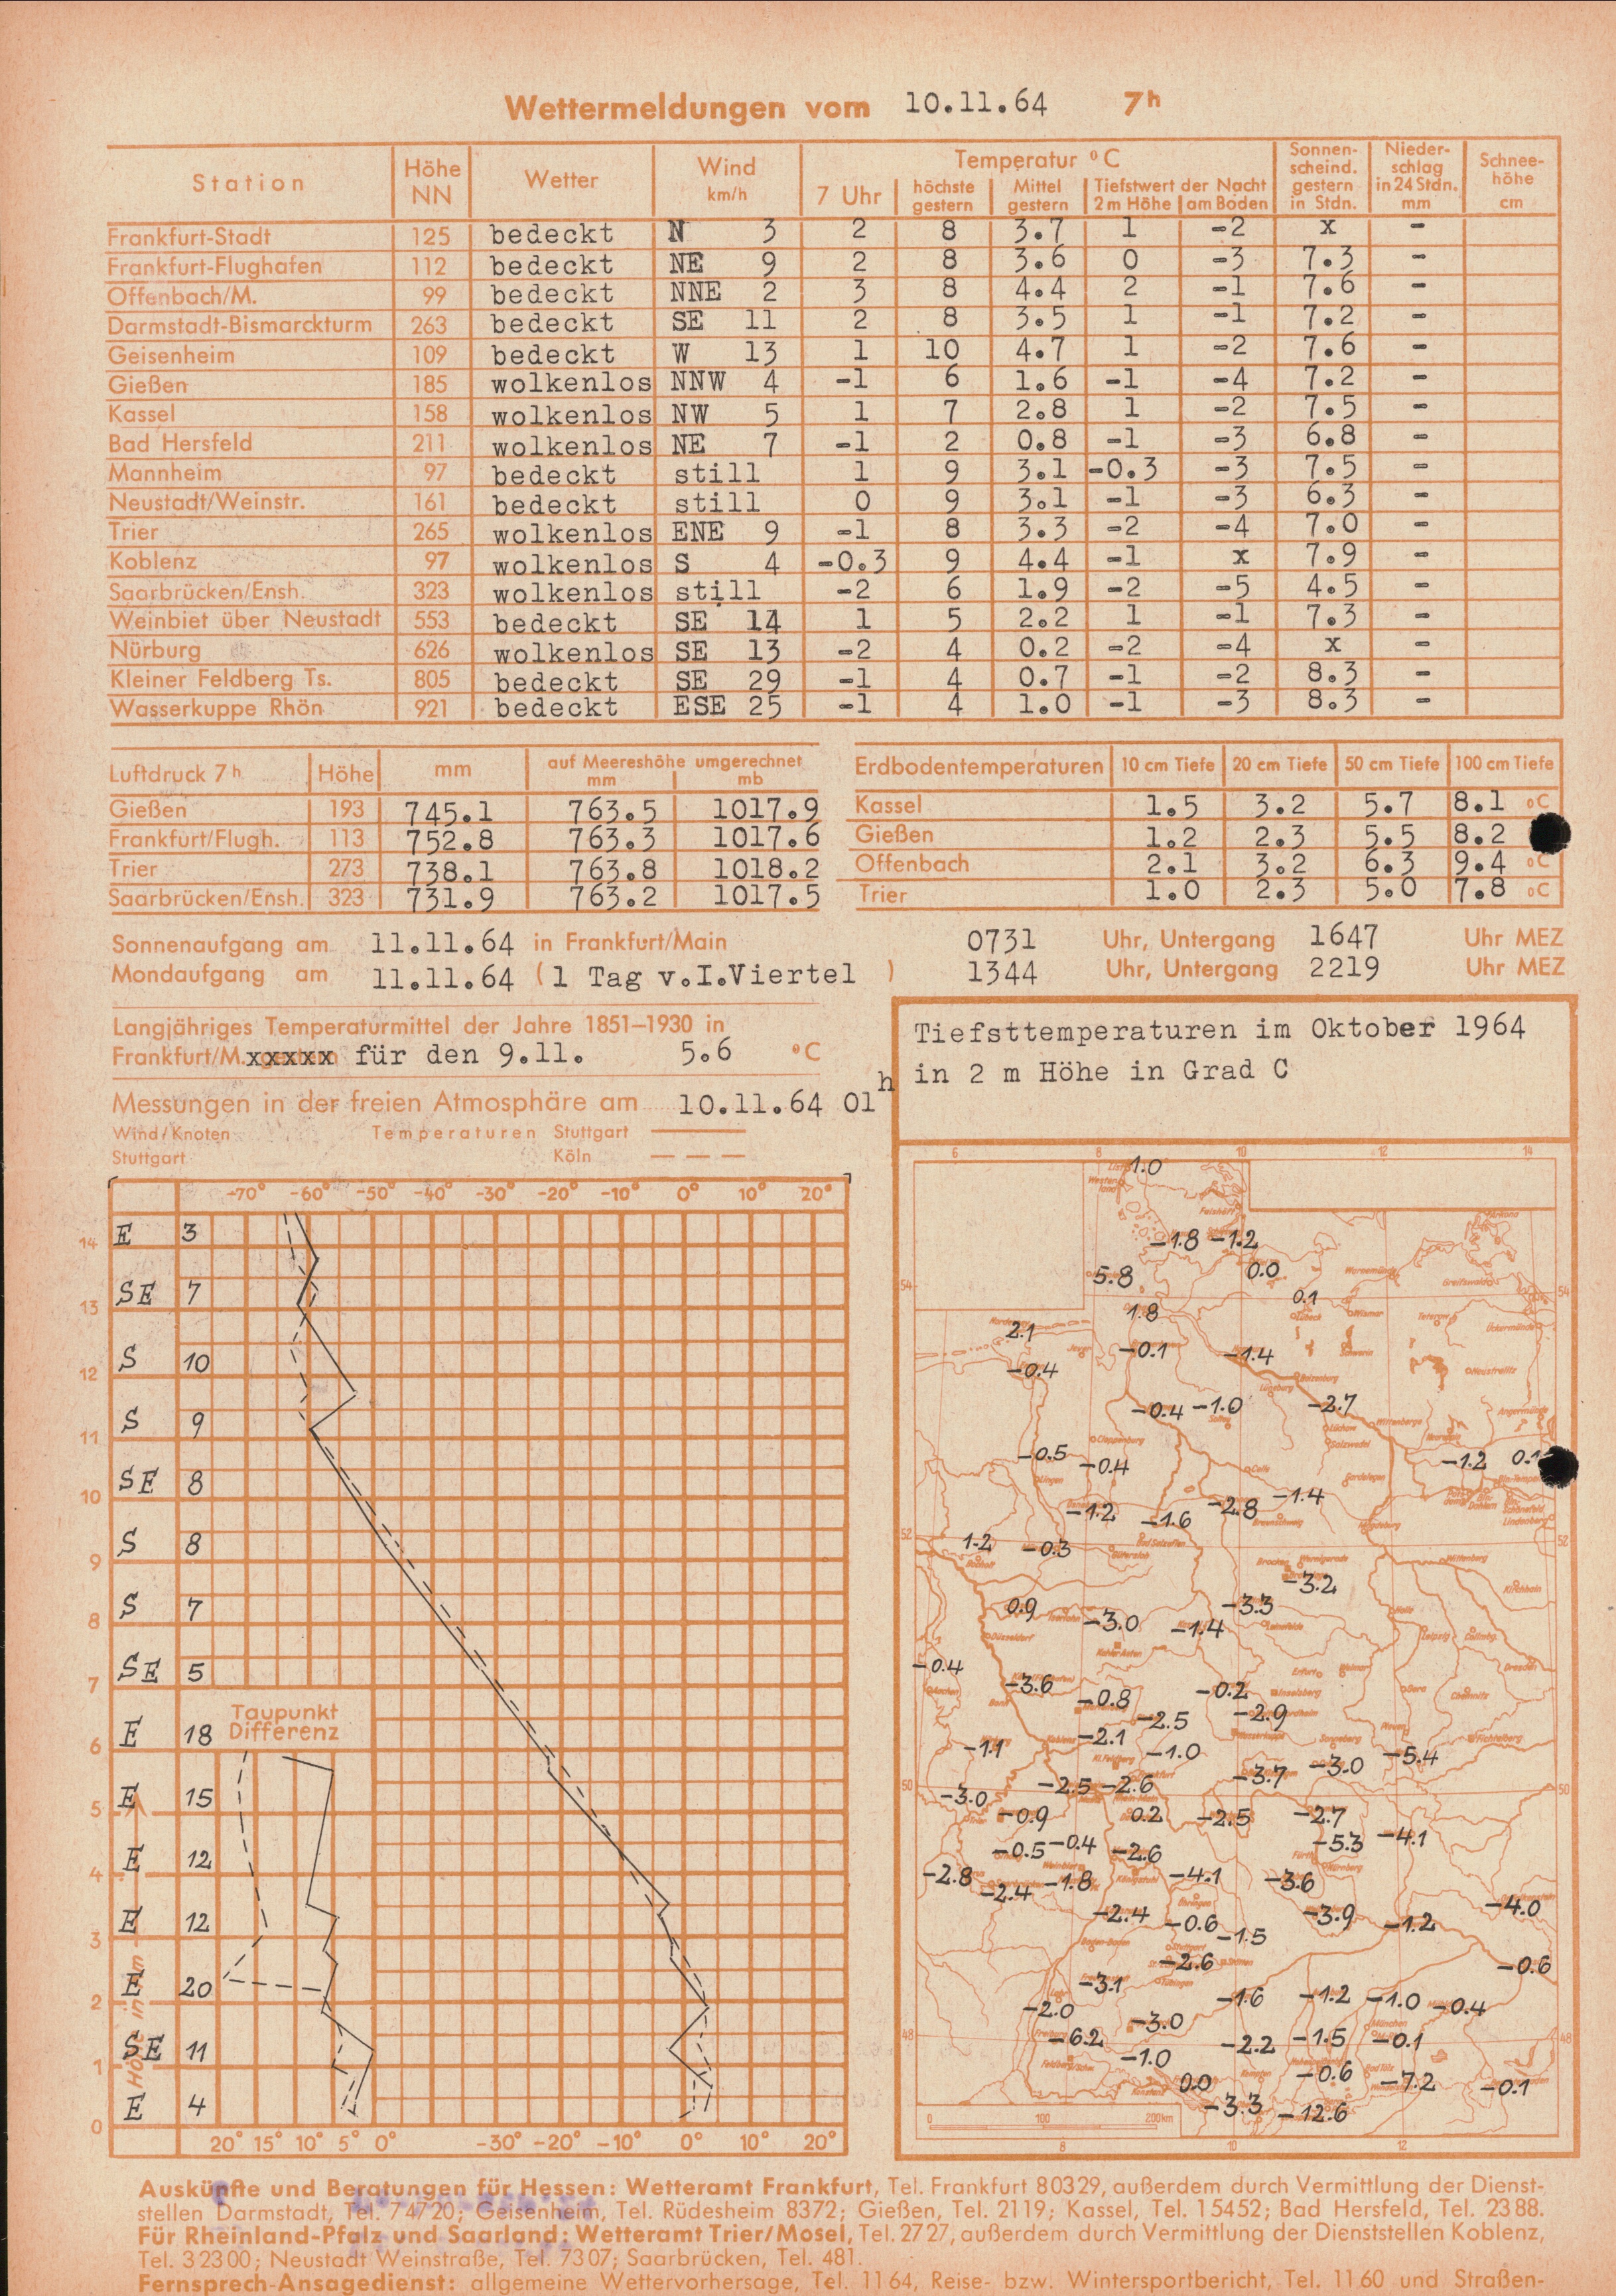 Wettermeldungen vom 10.11.64 7h
Station Höhe NN Wetter Wind km/h Temperatur °C Sonnenscheind. gestern in Stdn. Niederschlag in 24 Stdn. mm Schneehöhe cm
7 Uhr höchste gestern Mittel gestern Tiefstwert der Nacht 2 m Höhe am Boden
Frankfurt-Stadt 125 bedeckt N 3 2 8 3.7 1 -2 x -
Frankfurt-Flughafen 112 bedeckt NE 9 2 8 3.6 0 -3 7.3 -
Offenbach/M. 99 bedeckt NNE 2 3 8 4.4 2 -1 7.6 -
Darmstadt-Bismarckturm 263 bedeckt SE 11 2 8 3.5 1 -1 7.2 -
Geisenheim 109 bedeckt W 13 1 10 4.7 1 -2 7.6 -
Gießen 185 wolkenlos NNW 4 -1 6 1.6 -1 -4 7.2 -
Kassel 158 wolkenlos NW 5 1 7 2.8 1 -2 7.5 -
Bad Hersfeld 211 wolkenlos NE 7 -1 2 0.8 -1 -3 6.8 -
Mannheim 97 bedeckt still 1 9 3.1 -0.3 -3 7.5 -
Neustadt/Weinstr. 161 bedeckt still 0 9 3.1 -1 -3 6.3 -
Trier 265 wolkenlos ENE 9 -1 8 3.3 -2 -4 7.0 -
Koblenz 97 wolkenlos S 4 -0.3 9 4.4 -1 x 7.9 -
Saarbrücken/Ensh. 323 wolkenlos still -2 6 1.9 -2 -5 4.5 -
Weinbiet über Neustadt 553 bedeckt SE 14 1 5 2.2 1 -1 7.3 -
Nürburg 626 wolkenlos SE 13 -2 4 0.2 -2 -4 x -
Kleiner Feldberg Ts. 805 bedeckt SE 29 -1 4 0.7 -1 -2 8.3 -
Wasserkuppe Rhön 921 bedeckt ESE 25 -1 4 1.0 -1 -3 8.3 -
Luftdruck 7h Höhe mm auf Meereshöhe umgerechnet mm mb
Gießen 193 745.1 763.5 1017.9
Frankfurt/Flugh. 113 752.8 763.3 1017.6
Trier 273 738.1 763.8 1018.2
Saarbrücken/Ensh. 323 731.9 763.2 1017.5
Erdbodentemperaturen 10 cm Tiefe 20 cm Tiefe 50 cm Tiefe 100 cm Tiefe
Kassel 1.5 3.2 5.7 8.1 °C
Gießen 1.2 2.3 5.5 8.2
Offenbach 2.1 3.2 6.3 9.4 °C
Trier 1.0 2.3 5.0 7.8 °C
Sonnenaufgang am 11.11.64 in Frankfurt/Main 0731 Uhr, Untergang 1647 Uhr MEZ
Mondaufgang am 11.11.64 (1 Tag v.I.Viertel ) 1344 Uhr, Untergang 2219 Uhr MEZ
Langjähriges Temperaturmittel der Jahre 1851–1930 in
Frankfurt/M. xxxxx für den 9.11. 5.6 °C
Messungen in der freien Atmosphäre am 10.11.64 01h
Wind/Knoten Temperaturen Stuttgart
Stuttgart Köln
-70° -60° -50° -40° -30° -20° -10° 0° 10° 20°
14 E 3
13 SE 7
12 S 10
11 S 9
10 SE 8
9 S 8
8 S 7
7 SE 5
Taupunkt
Differenz
6 E 18
5 E 15
4 E 12
3 E 12
2 E 20
1 SE 11
0 E 4
Höhe in km
20° 15° 10° 5° 0° -30° -20° -10° 0° 10° 20°
Tiefsttemperaturen im Oktober 1964
in 2 m Höhe in Grad C
6 8 10 12 14
1.0
-1.8 -1.2
5.8 0.0
54 0.1 54
1.8
2.1
-0.1 -1.4
-0.4
-0.4 -1.0 -2.7
-0.5 -0.4 -1.2 0.1
-1.2 -1.6 -2.8 -1.4
52 1.2 -0.3 52
-3.2
0.9 -3.0 -1.4 -3.3
-0.4
-3.6 -0.8 -0.2
-2.5 -2.9
-1.1 -2.1 -1.0 -3.0 -5.4
50 -3.0 -2.5 -2.6 -3.7 50
-0.9 0.2 -2.5 -2.7
-0.5 -0.4 -2.6 -5.3 -4.1
-2.8 -2.4 -1.8 -4.1 -3.6
-2.4 -0.6 -1.5 -3.9 -1.2 -4.0
-2.6 -0.6
-3.1
-2.0 -3.0 -1.6 -1.2 -1.0 -0.4
48 -6.2 -1.0 -2.2 -1.5 -0.1 48
0.0 -0.6 -7.2 -0.1
-3.3 -12.6
0 100 200km
8 10 12
Auskünfte und Beratungen für Hessen: Wetteramt Frankfurt, Tel. Frankfurt 80329, außerdem durch Vermittlung der Dienst-
stellen Darmstadt, Tel. 74720; Geisenheim, Tel. Rüdesheim 8372; Gießen, Tel. 2119; Kassel, Tel. 15452; Bad Hersfeld, Tel. 2388.
Für Rheinland-Pfalz und Saarland: Wetteramt Trier/Mosel, Tel. 2727, außerdem durch Vermittlung der Dienststellen Koblenz,
Tel. 32300; Neustadt Weinstraße, Tel. 7307; Saarbrücken, Tel. 481.
Fernsprech-Ansagedienst: allgemeine Wettervorhersage, Tel. 1164, Reise- bzw. Wintersportbericht, Tel. 1160 und Straßen-